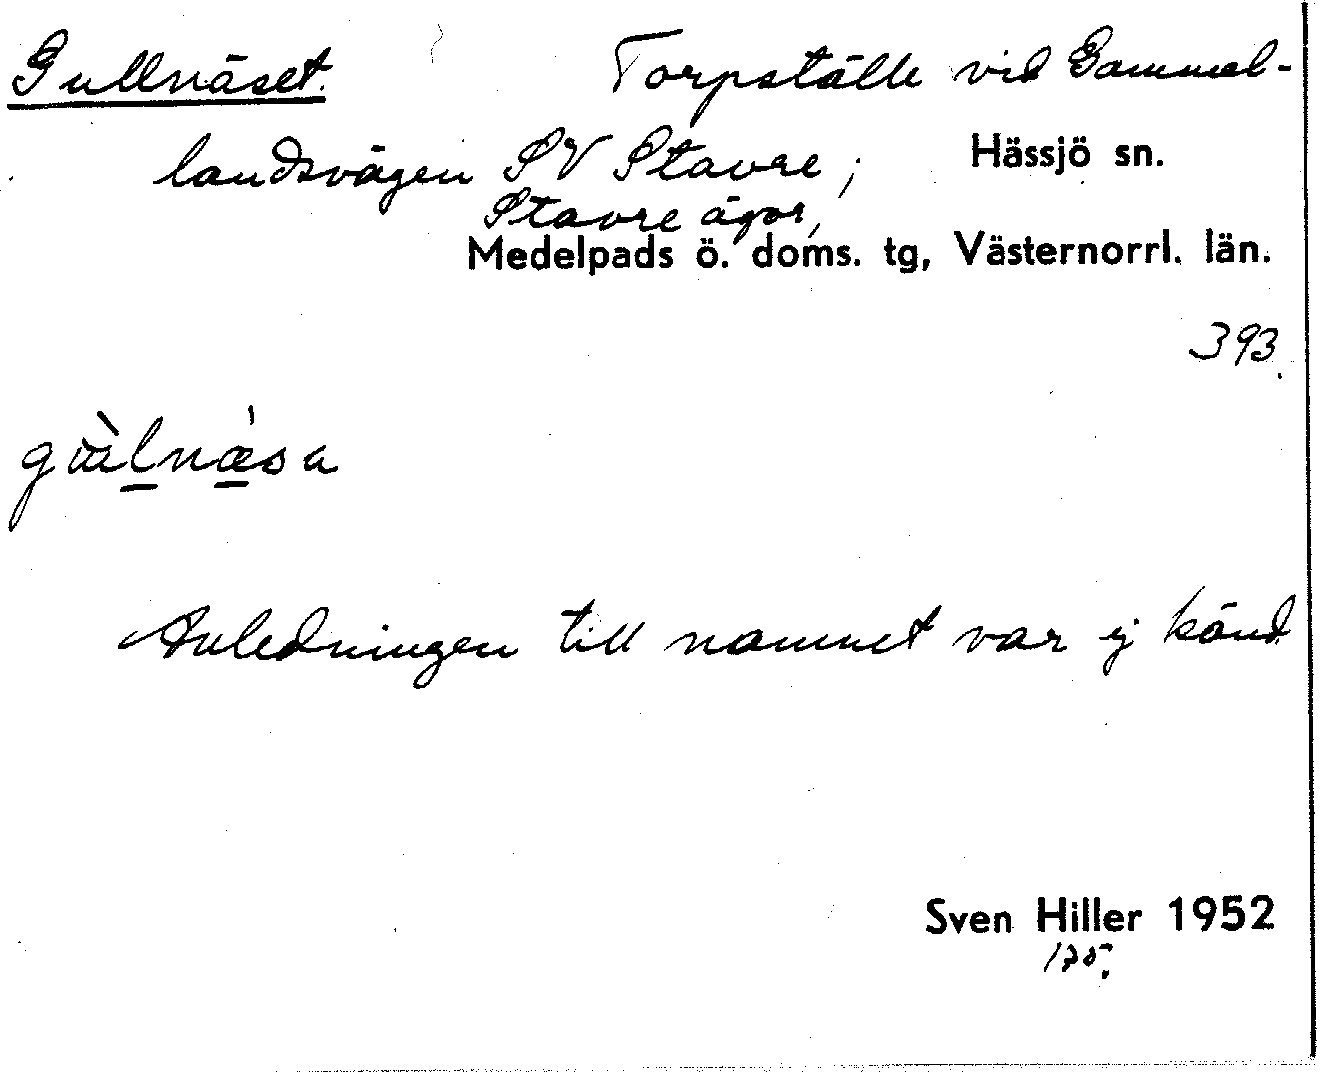 Gullnäset. Torpställe vid Gammel-
landsvägen SV Stavre; Hässjö sn.
Stavre ägor,
Medelpads ö. doms. tg, Västernorrl. län.
393
Anledningen till namnet var ej känd
Sven Hiller 1952